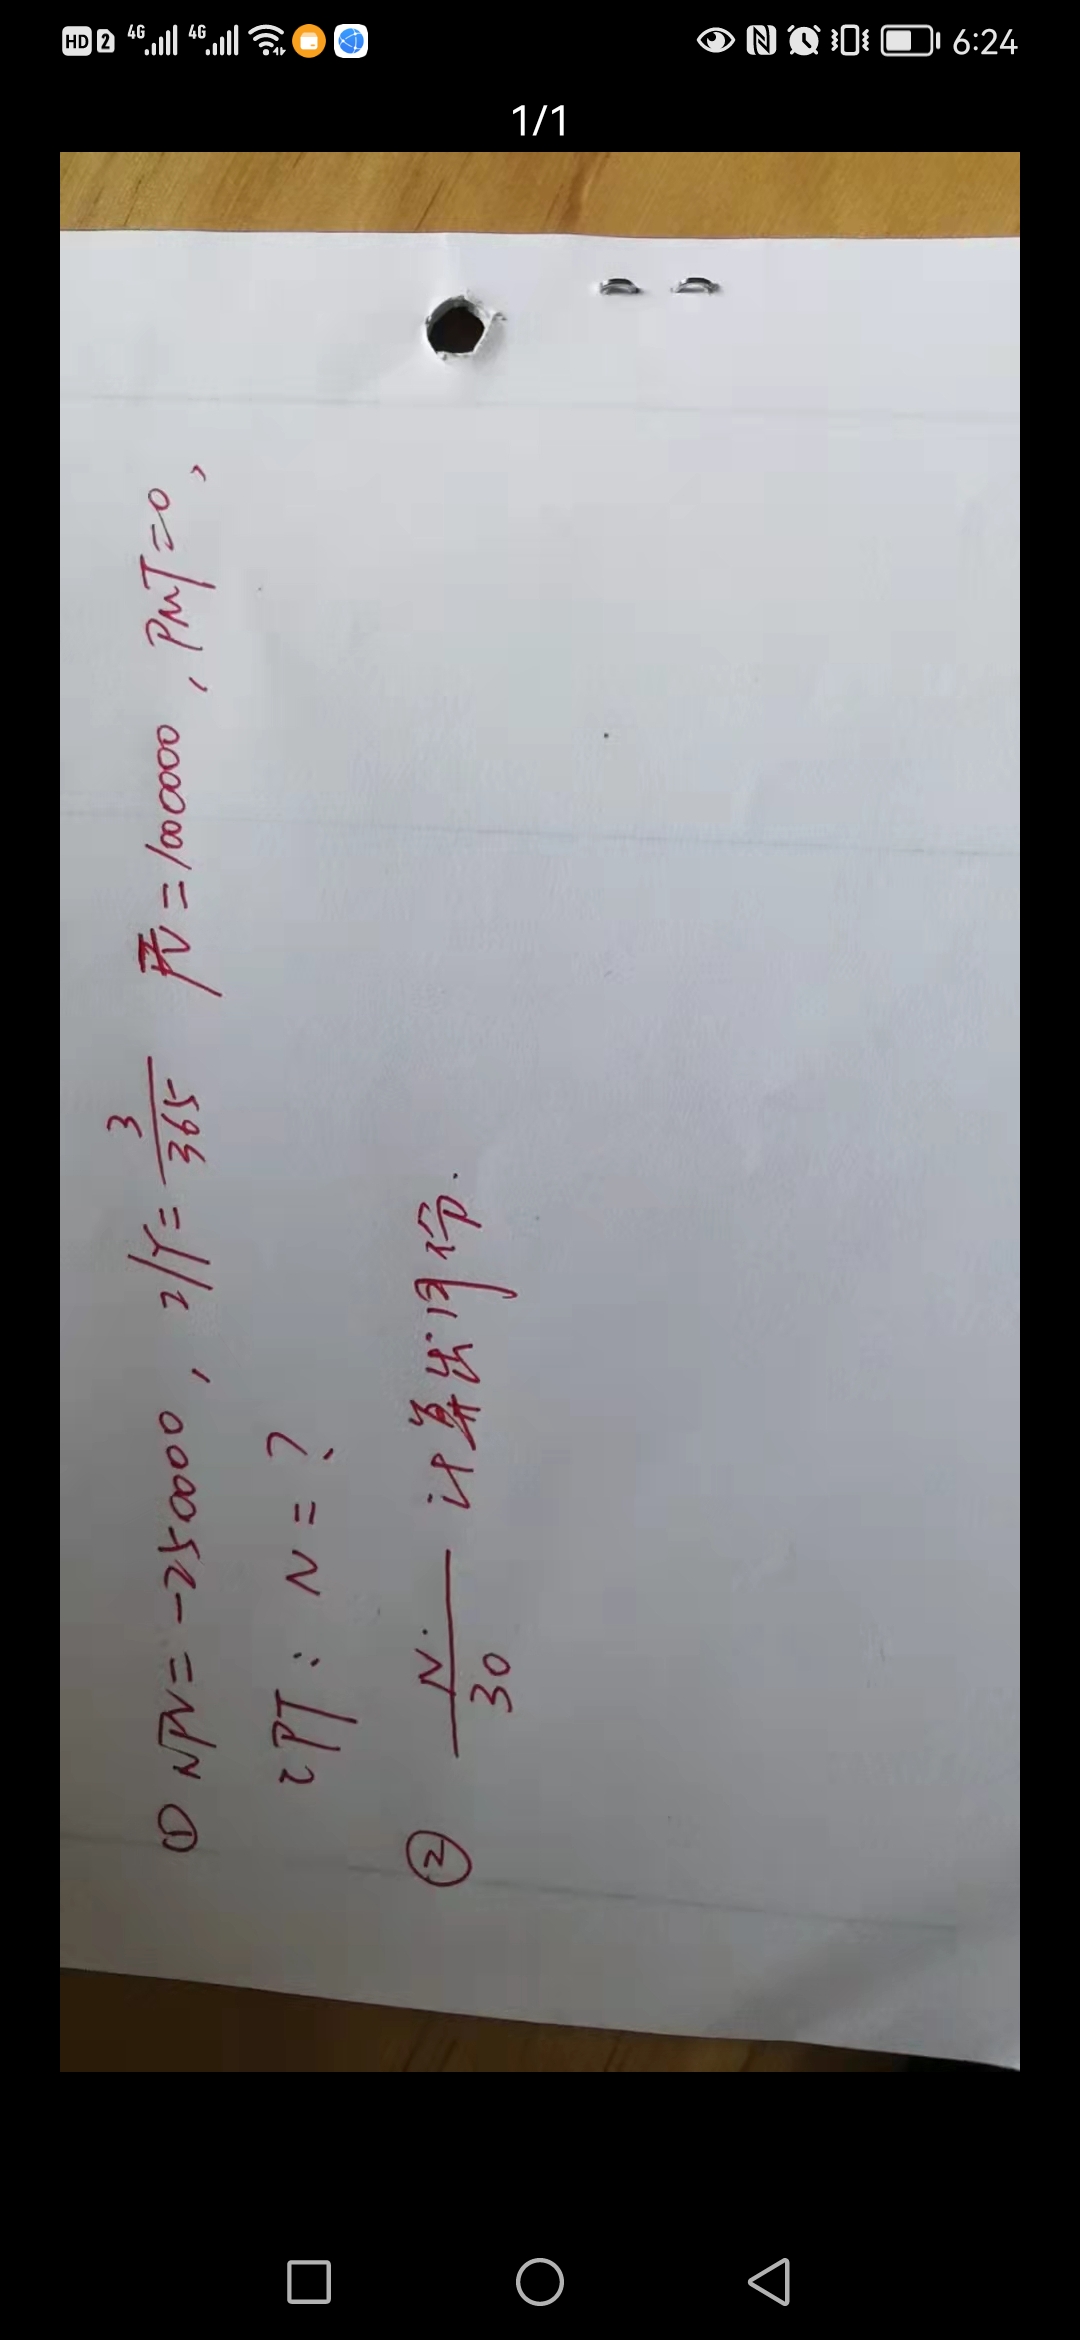 HD 2 4G 4G 6:24
1/1
① NPV=-25000, I/Y=3/365 FV=100000, PMT=0,
CPT: N=?
② N/30 计算出得